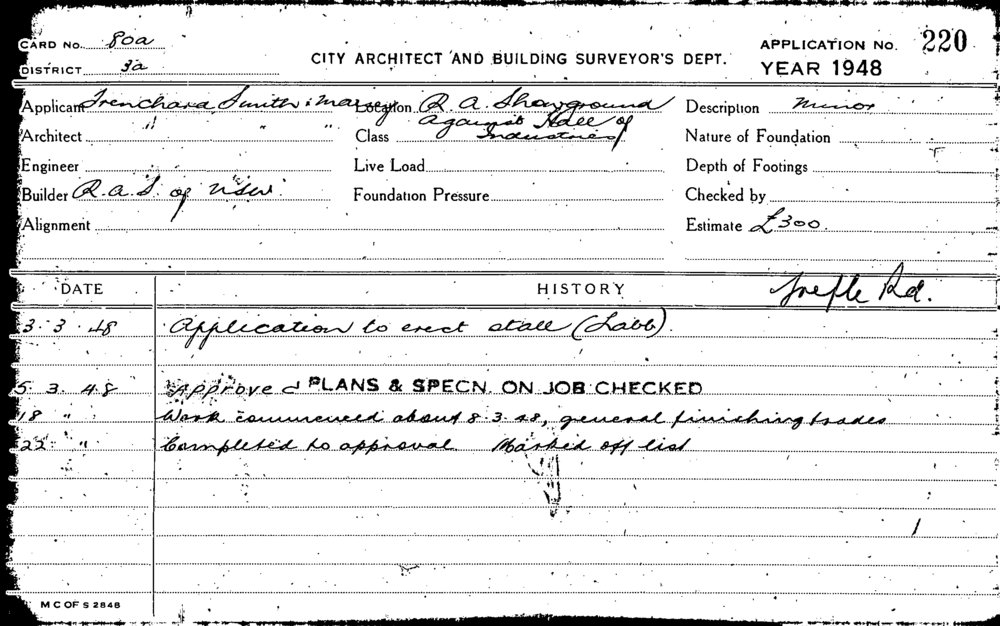 CARD No. 80a
DISTRICT 3a
CITY ARCHITECT AND BUILDING SURVEYOR'S DEPT.
APPLICATION No. 220
YEAR 1948
Applicant Trenchard Smith & Maisey Location R. A. Showground Description Minor
against Hall of
Architect " " " Class Industries Nature of Foundation
Engineer Live Load Depth of Footings
Builder R.A.S. of NSW. Foundation Pressure Checked by
Alignment Estimate £300.
DATE HISTORY Rd.
3.3.48 Application to erect stall
5.3.48 Approved PLANS & SPECN. ON JOB CHECKED
18 " Work commenced about 8.3.48, general finishing trades
22 " Completed to approval Marked off list
M C OF S 2848